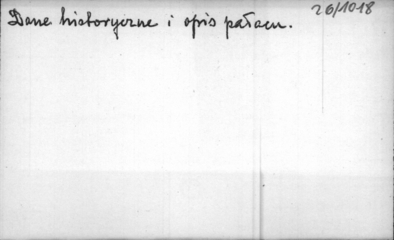 26/1018
Dane historyczne i opis pałacu.